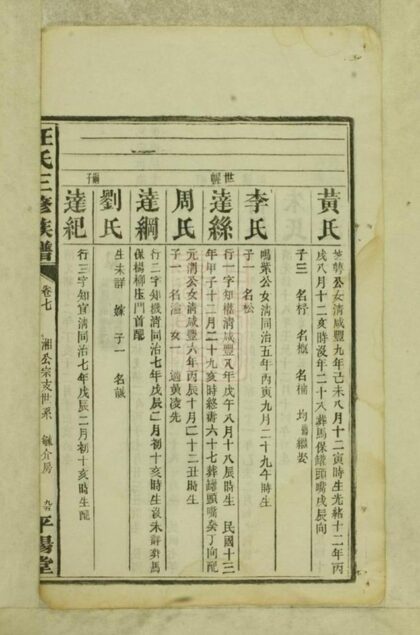 黃氏
公女清咸豐九年己未八月十二寅時生光緒十二年丙
戌八月十二亥時沒年二十八葬馬保罐頭嘴戌辰向
子三 名
李氏
鳴紫公女清同治五年丙寅九月二十九午時生
子一 名松
世
達絲
行一字知權清咸豐八年戊午八月十八辰時生 民國十三
年甲子十二月二十九亥時終壽六十七葬罐頭嘴癸丁向配
周氏
元清公女清咸豐六年丙辰十月二十二丑時生
子一 名 女一 適黃淩先
子
達綱
行二字知機清同治七年戊辰二月初十亥時生沒未詳葬馬
保楊柳庄門首配
劉氏
生未詳 嫁 子一 名誠
達紀
行三字知宜清同治七年戊辰二月初十亥時生配
汪氏三修族譜
卷七
湘公宗支世系 毓介房
平陽堂